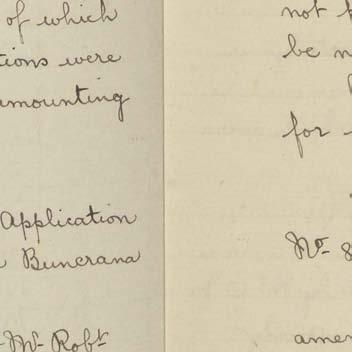 of which
tions were
amounting
Application
Buncrana
Mr Robt
not
be
for
Mr